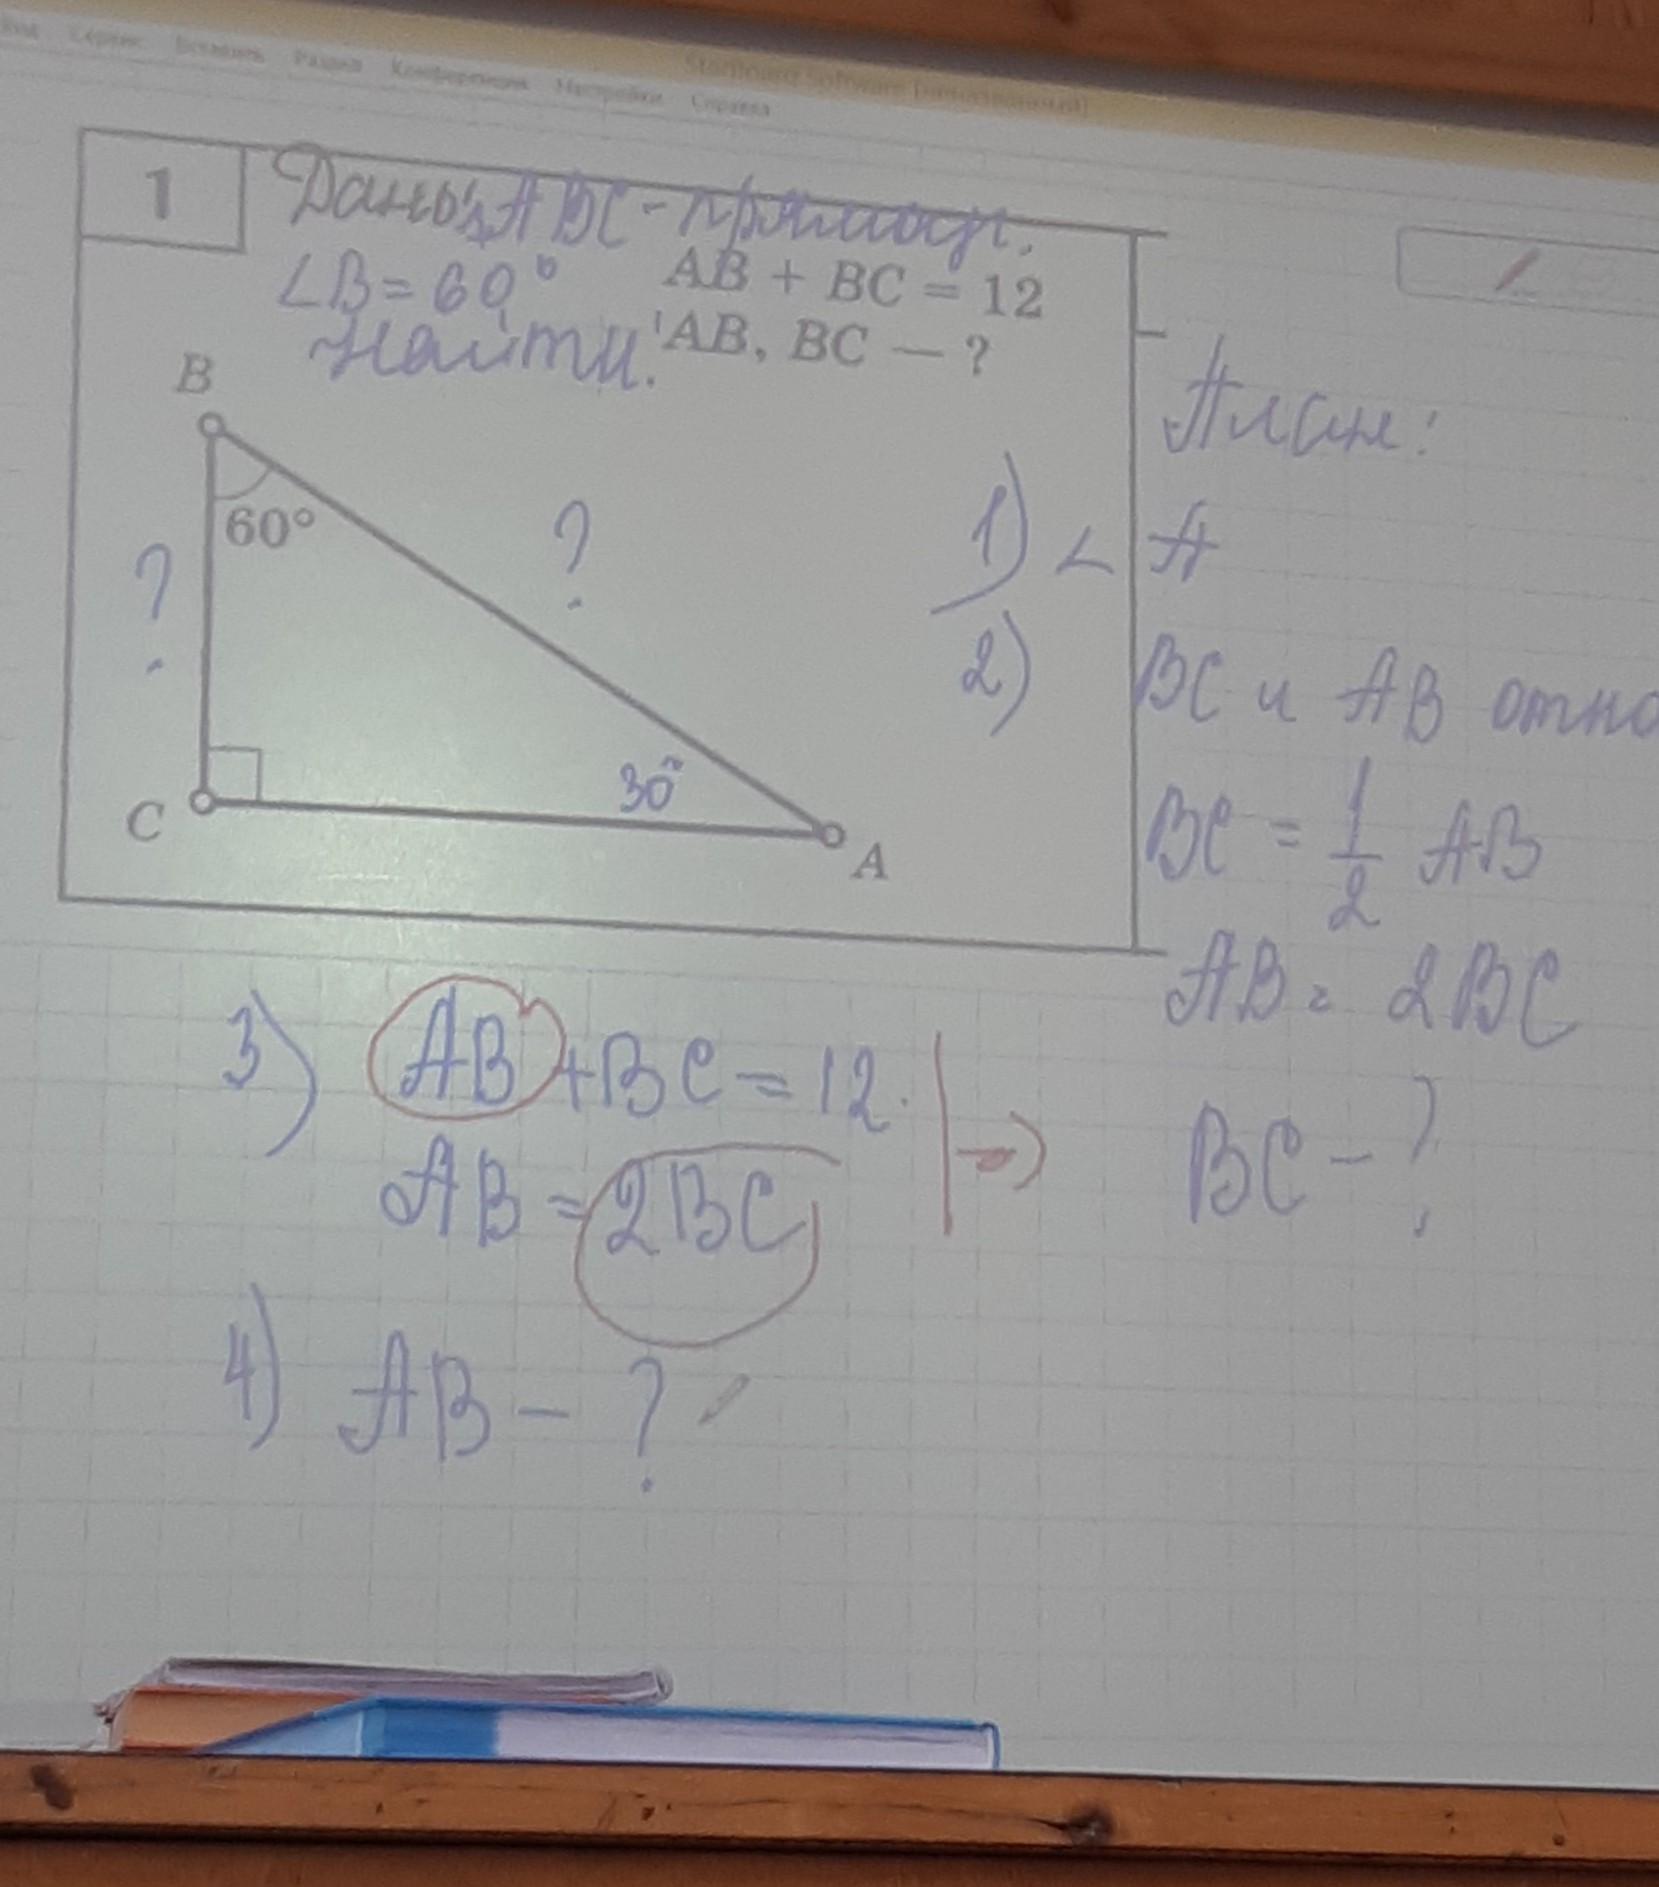 Сервис Вставить Раздел Конференция Настройки Справка
StarBoard Software
1
Дано: ABC - прямоуг.
∠B = 60° AB + BC = 12
Найти: AB, BC — ?
B
60°
?
?
C
30°
A
План:
1) ∠ A
2) BC и AB отно
BC = 1/2 AB
AB = 2BC
3) AB + BC = 12. ⇒ BC - ?
AB = 2BC
4) AB - ?